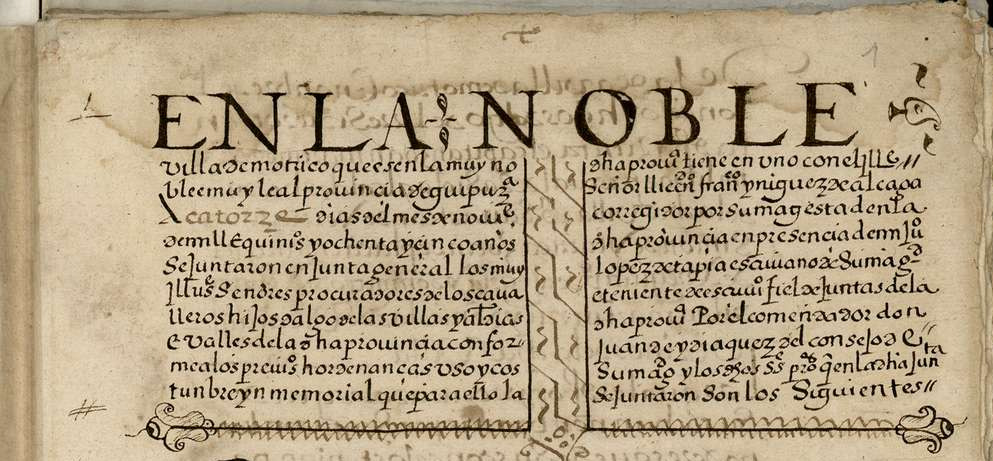 1
EN LA NOBLE
villa de motrico que es en la muy no
ble e muy leal provincia de guipuzª
A catorze dias del mes de novie
de mill E quinios y ochenta y cinco años
Se Juntaron en Junta general los muy
Jllus Señores procuradores de los cava
lleros hijos dalgo de las villas y aldias
E valles de la dha provincia confor-
me a los previos hordenanças uso y cos
tunbre y n memorial que para ello la
dha provi tiene en uno con el ille
Señor llicen fran yniguez de alcapa
corregidor por Su magestad en la
dha provincia en presencia de mi Ju
lopez de tapia escrivano de Su magd
e teniente de escrivu fiel de Juntas de la
dha provi Por el comendador don
Juan de ydiaquez del consejo de E
Su magd y los dhos Ss pros q en la dha Junta
Se Juntaron Son los Siguientes